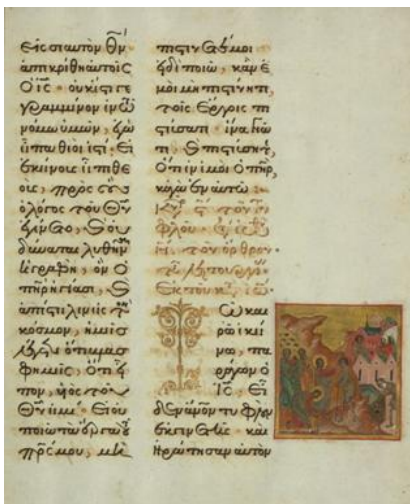 εἰς σεαυτὸν Θν̅
ἀπεκρίθη αὐτοῖς
ὁ Ις̅· οὐκ ἔστι γε
γραμμένον ἐν τῶ
νόμω ὑμῶν, ἐγὼ
εἶπα θεοί ἐστέ· εἰ
ἐκείνους εἶπε θε
οὺς, πρὸς οὓς
ὁ λόγος τοῦ Θυ̅
ἐγένετο, καὶ οὐ
δύναται λυθῆναι
ἡ γραφὴ, ὃν ὁ
πη̅ρ ἡγίασε καὶ
ἀπέστειλεν εἰς τὸν
κόσμον, ὑμεῖς
λέγετε ὅτι βλασ
φημεῖς, ὅτι εἶ
πον, υἱὸς τοῦ
Θυ̅ εἰμι· εἰ οὐ
ποιῶ τὰ ἔργα τοῦ
πρ̅ς μου, μὴ
πιστεύετέ μοι
εἰ δὲ ποιῶ, κἂν ἐ
μοὶ μὴ πιστεύητε,
τοῖς ἔργοις πι
στεύσατε ἵνα γνῶ
τε, καὶ πιστεύσητε,
ὅτι ἐν ἐμοὶ ὁ πη̅ρ,
κἀγὼ ἐν αὐτῶ
τοῦ τυ
φλοῦ
τὸν ὄρθρον
ἐκ τοῦ κατὰ
Τῶ και
ρῶ ἐκεί
νω, πα
ράγων ὁ
Ις̅, εἶ
δεν ἄνον τυφλὸν
ἐκ γενετῆς καὶ
ἠρώτησαν αὐτὸν